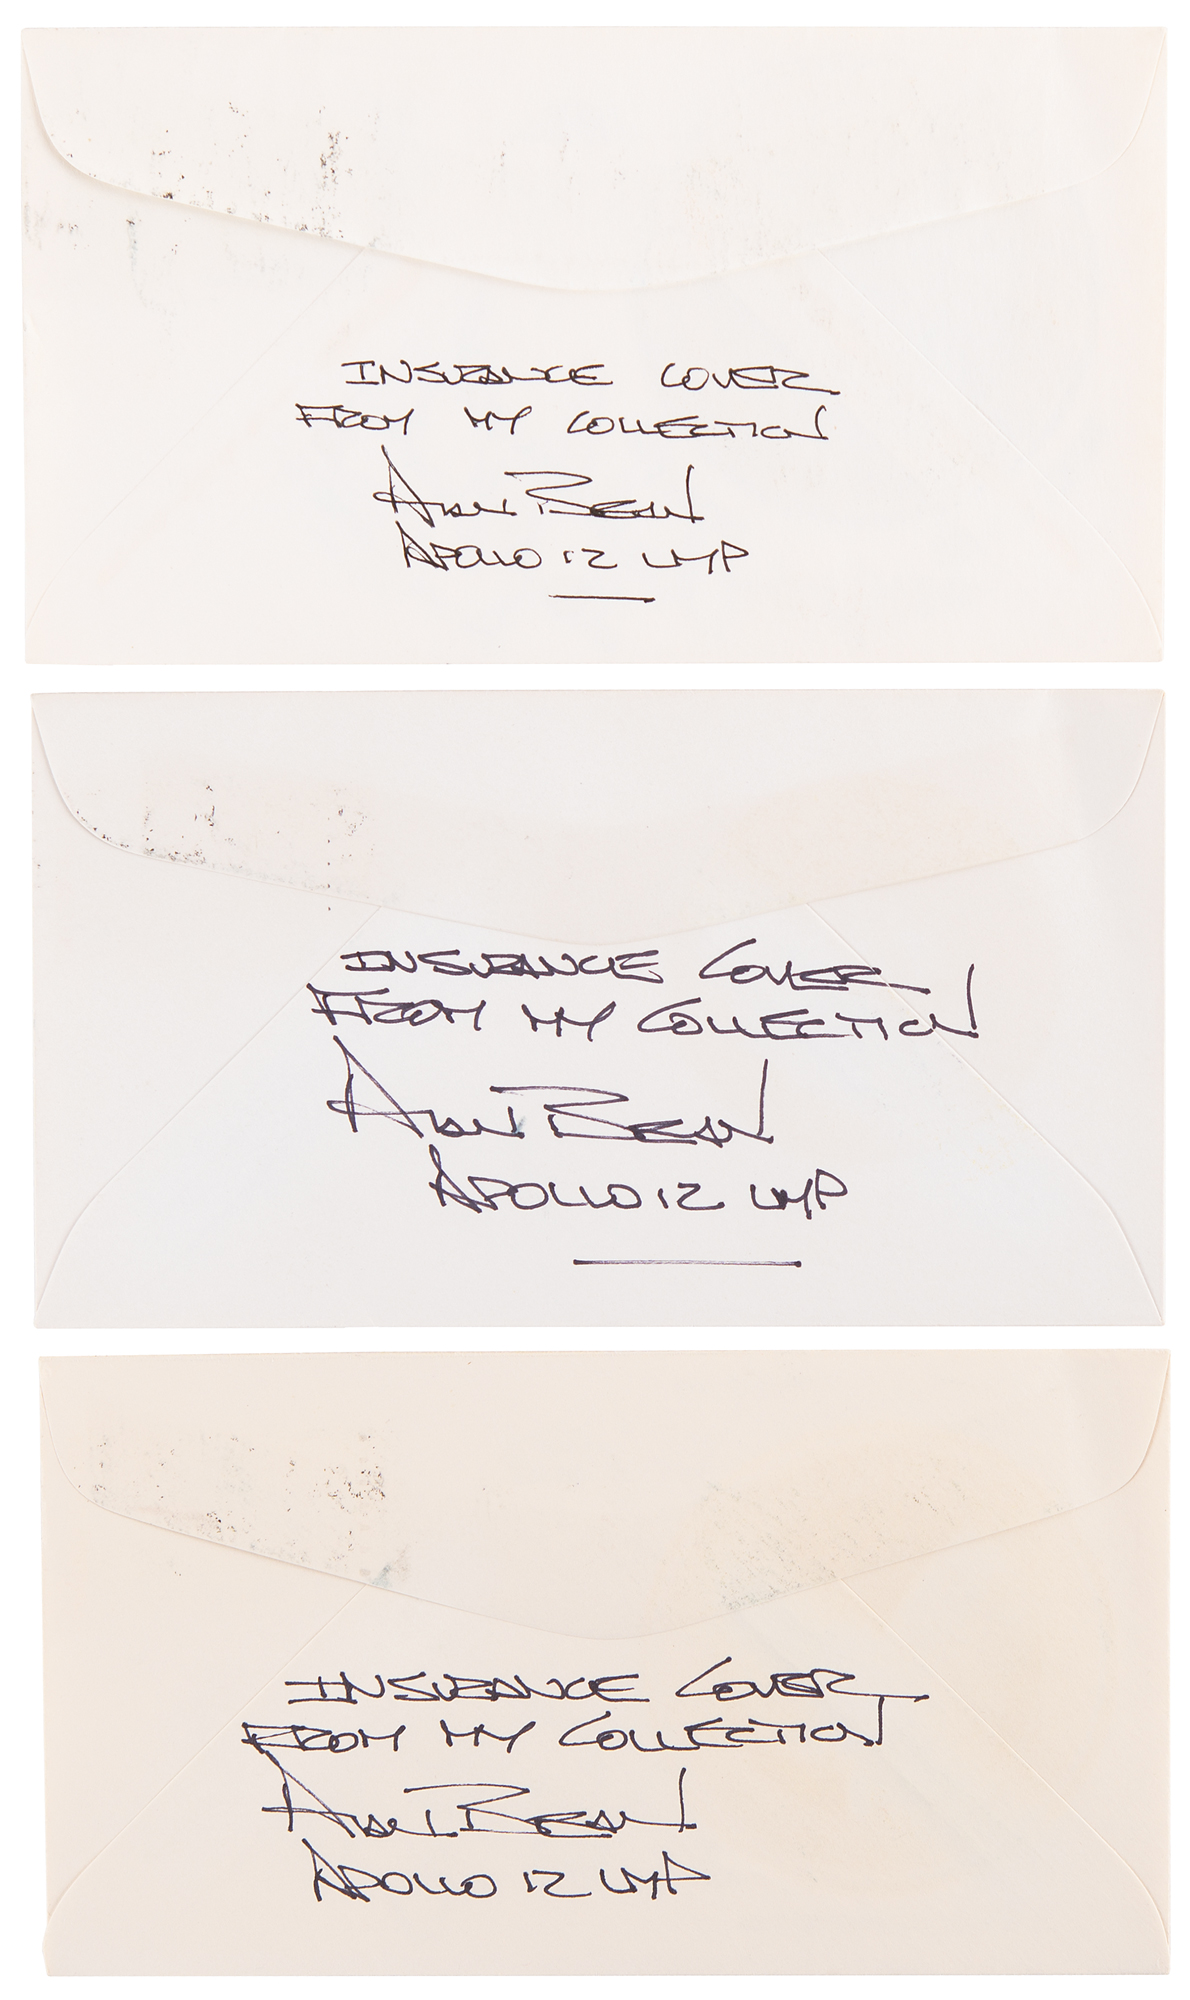 INSURANCE COVER
FROM MY COLLECTION
Alan Bean
APOLLO 12 LMP
INSURANCE COVER
FROM MY COLLECTION
Alan Bean
APOLLO 12 LMP
INSURANCE COVER
FROM MY COLLECTION
Alan Bean
APOLLO 12 LMP